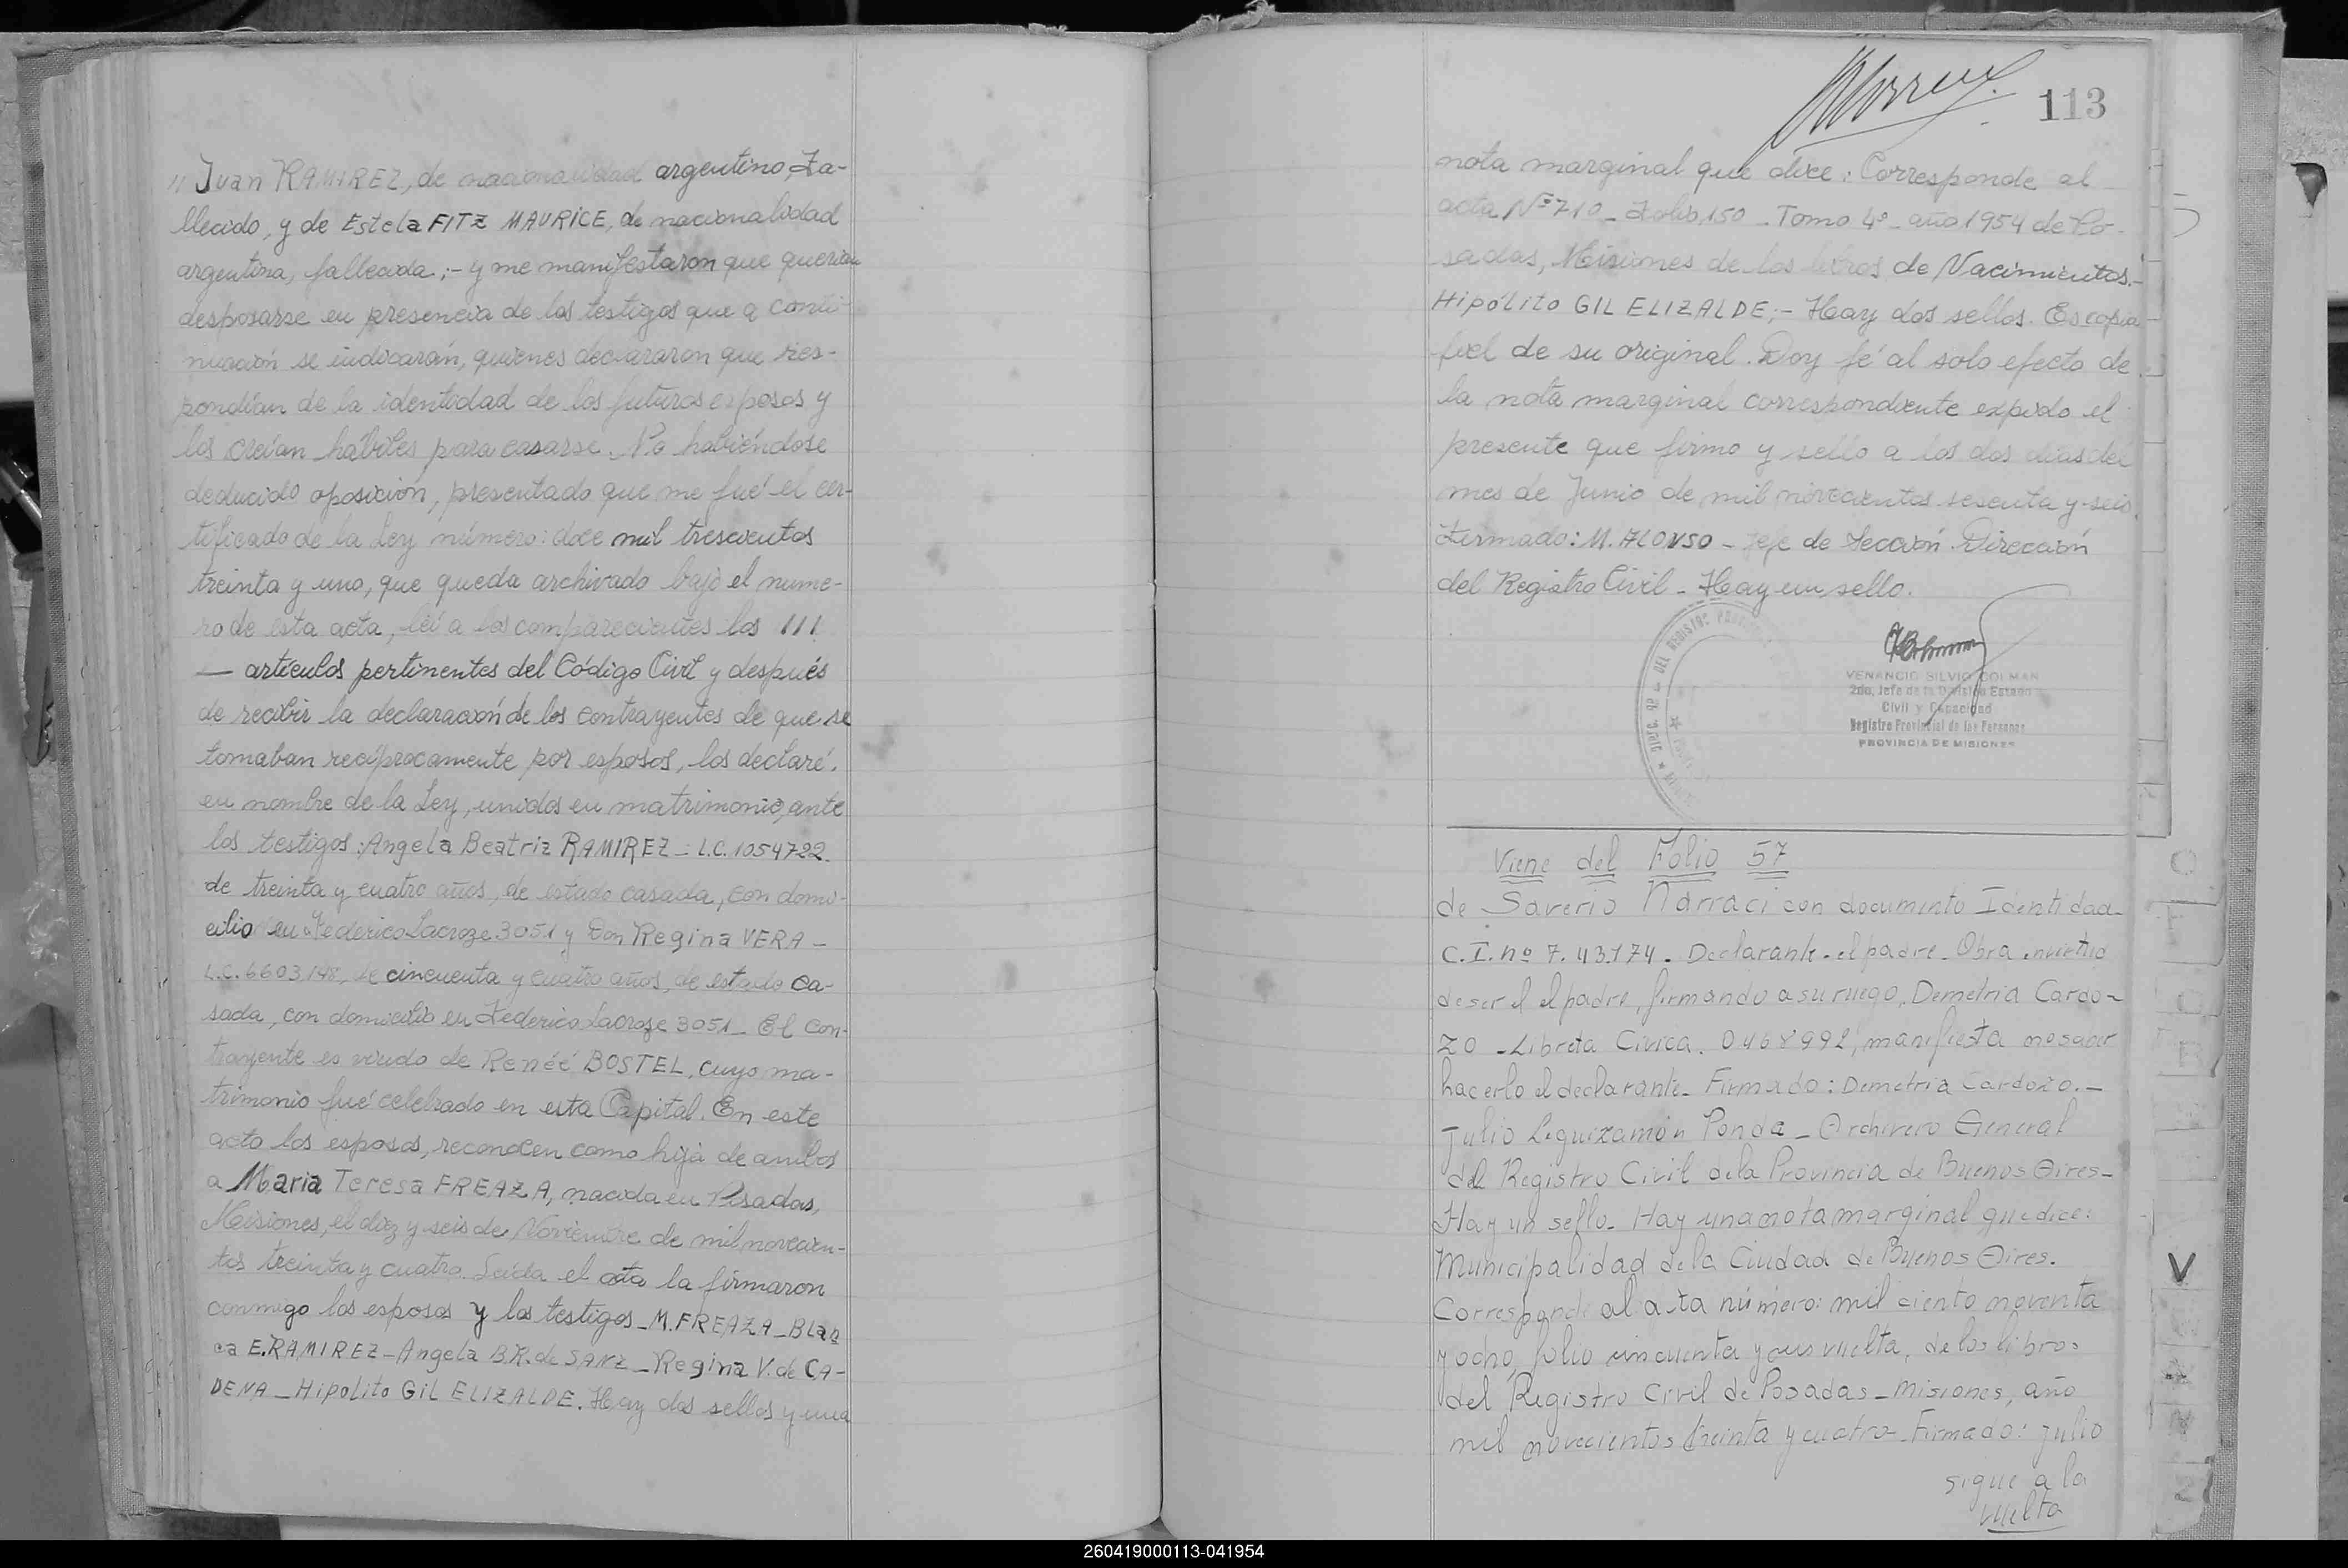 " Juan RAMIREZ, de nacionalidad argentino, fa-
llecido, y de Estela FITZ MAURICE, de nacionalidad
argentina, fallecida;- y me manifestaron que querian
desposarse en presencia de los testigos que a conti-
nuación se indicarán, quienes declararon que res-
pondían de la identidad de los futuros esposos y
los creían hábiles para casarse. No habiéndose
deducido oposición, presentado que me fué el cer-
tificado de la Ley número: doce mil trescientos
treinta y uno, que queda archivado bajo el nume-
ro de esta acta, leí a los comparecientes los 111
— artículos pertinentes del Código Civil y después
de recibir la declaración de los contrayentes de que se
tomaban recíprocamente por esposos, los declaré,
en nombre de la Ley, unidos en matrimonio, ante
los testigos: Angela Beatriz RAMIREZ - L.C. 1054722.
de treinta y cuatro años, de estado casada, con domi-
cilio en Federico Lacroze 3051 y Don Regina VERA -
L.C. 6603.148, de cincuenta y cuatro años, de estado ca-
sada, con domicilio en Federico Lacroze 3051 - El con-
trayente es viudo de Renéé BOSTEL, cuyo ma-
trimonio fué celebrado en esta Capital. En este
acto los esposos, reconocen como hija de ambos
a Maria Teresa FREAZA, nacida en Posadas,
Misiones, el diez y seis de Noviembre de mil novecien-
tos treinta y cuatro. Leída el acta la firmaron
conmigo los esposos y los testigos - M. FREAZA - Blan
ca E. RAMIREZ - Angela B.R. de SANZ - Regina V. de CA-
DENA - Hipolito GIL ELIZALDE. Hay dos sellos y una
113
nota marginal que dice: Corresponde al
acta Nº 710 - Folio, 150 - Tomo 4º - año 1954 de Po-
sadas, Misiones de los libros de Nacimientos.-
Hipólito GIL ELIZALDE;- Hay dos sellos. Es copia
fiel de su original. Doy fé al solo efecto de
la nota marginal correspondiente expido el
presente que firmo y sello a los dos dias del
mes de Junio de mil novecientos sesenta y seis.
Firmado: M. ALONSO - Jefe de Sección Dirección
del Registro Civil - Hay un sello.
DEL REGISTRO
VENANCIO SILVIO COLMAN
2do. Jefe de la División Estado
Civil y Capacidad
Registro Provincial de las Personas
PROVINCIA DE MISIONES
Viene del Folio 57
de Saverio Narraci con documento Identidad
C.I. nº 7.43174. Declarante - el padre - Obra en virtud
de ser él el padre, firmando a su ruego, Demetria Cardo-
zo - Libreta Civica. 0468992, manifiesta no saber
hacerlo el declarante - Firmado: Demetria Cardozo.-
Julio Leguizamón Ponda - Archivero General
del Registro Civil de la Provincia de Buenos Aires -
Hay un sello - Hay una nota marginal que dice:
Municipalidad de la Ciudad de Buenos Aires.
Corresponde al acta número: mil ciento noventa
y ocho, folio cincuenta y seis vuelta, de los libros
del Registro Civil de Posadas - Misiones, año
mil novecientos treinta y cuatro - Firmado: Julio
sigue a la
vuelta
V
260419000113-041954